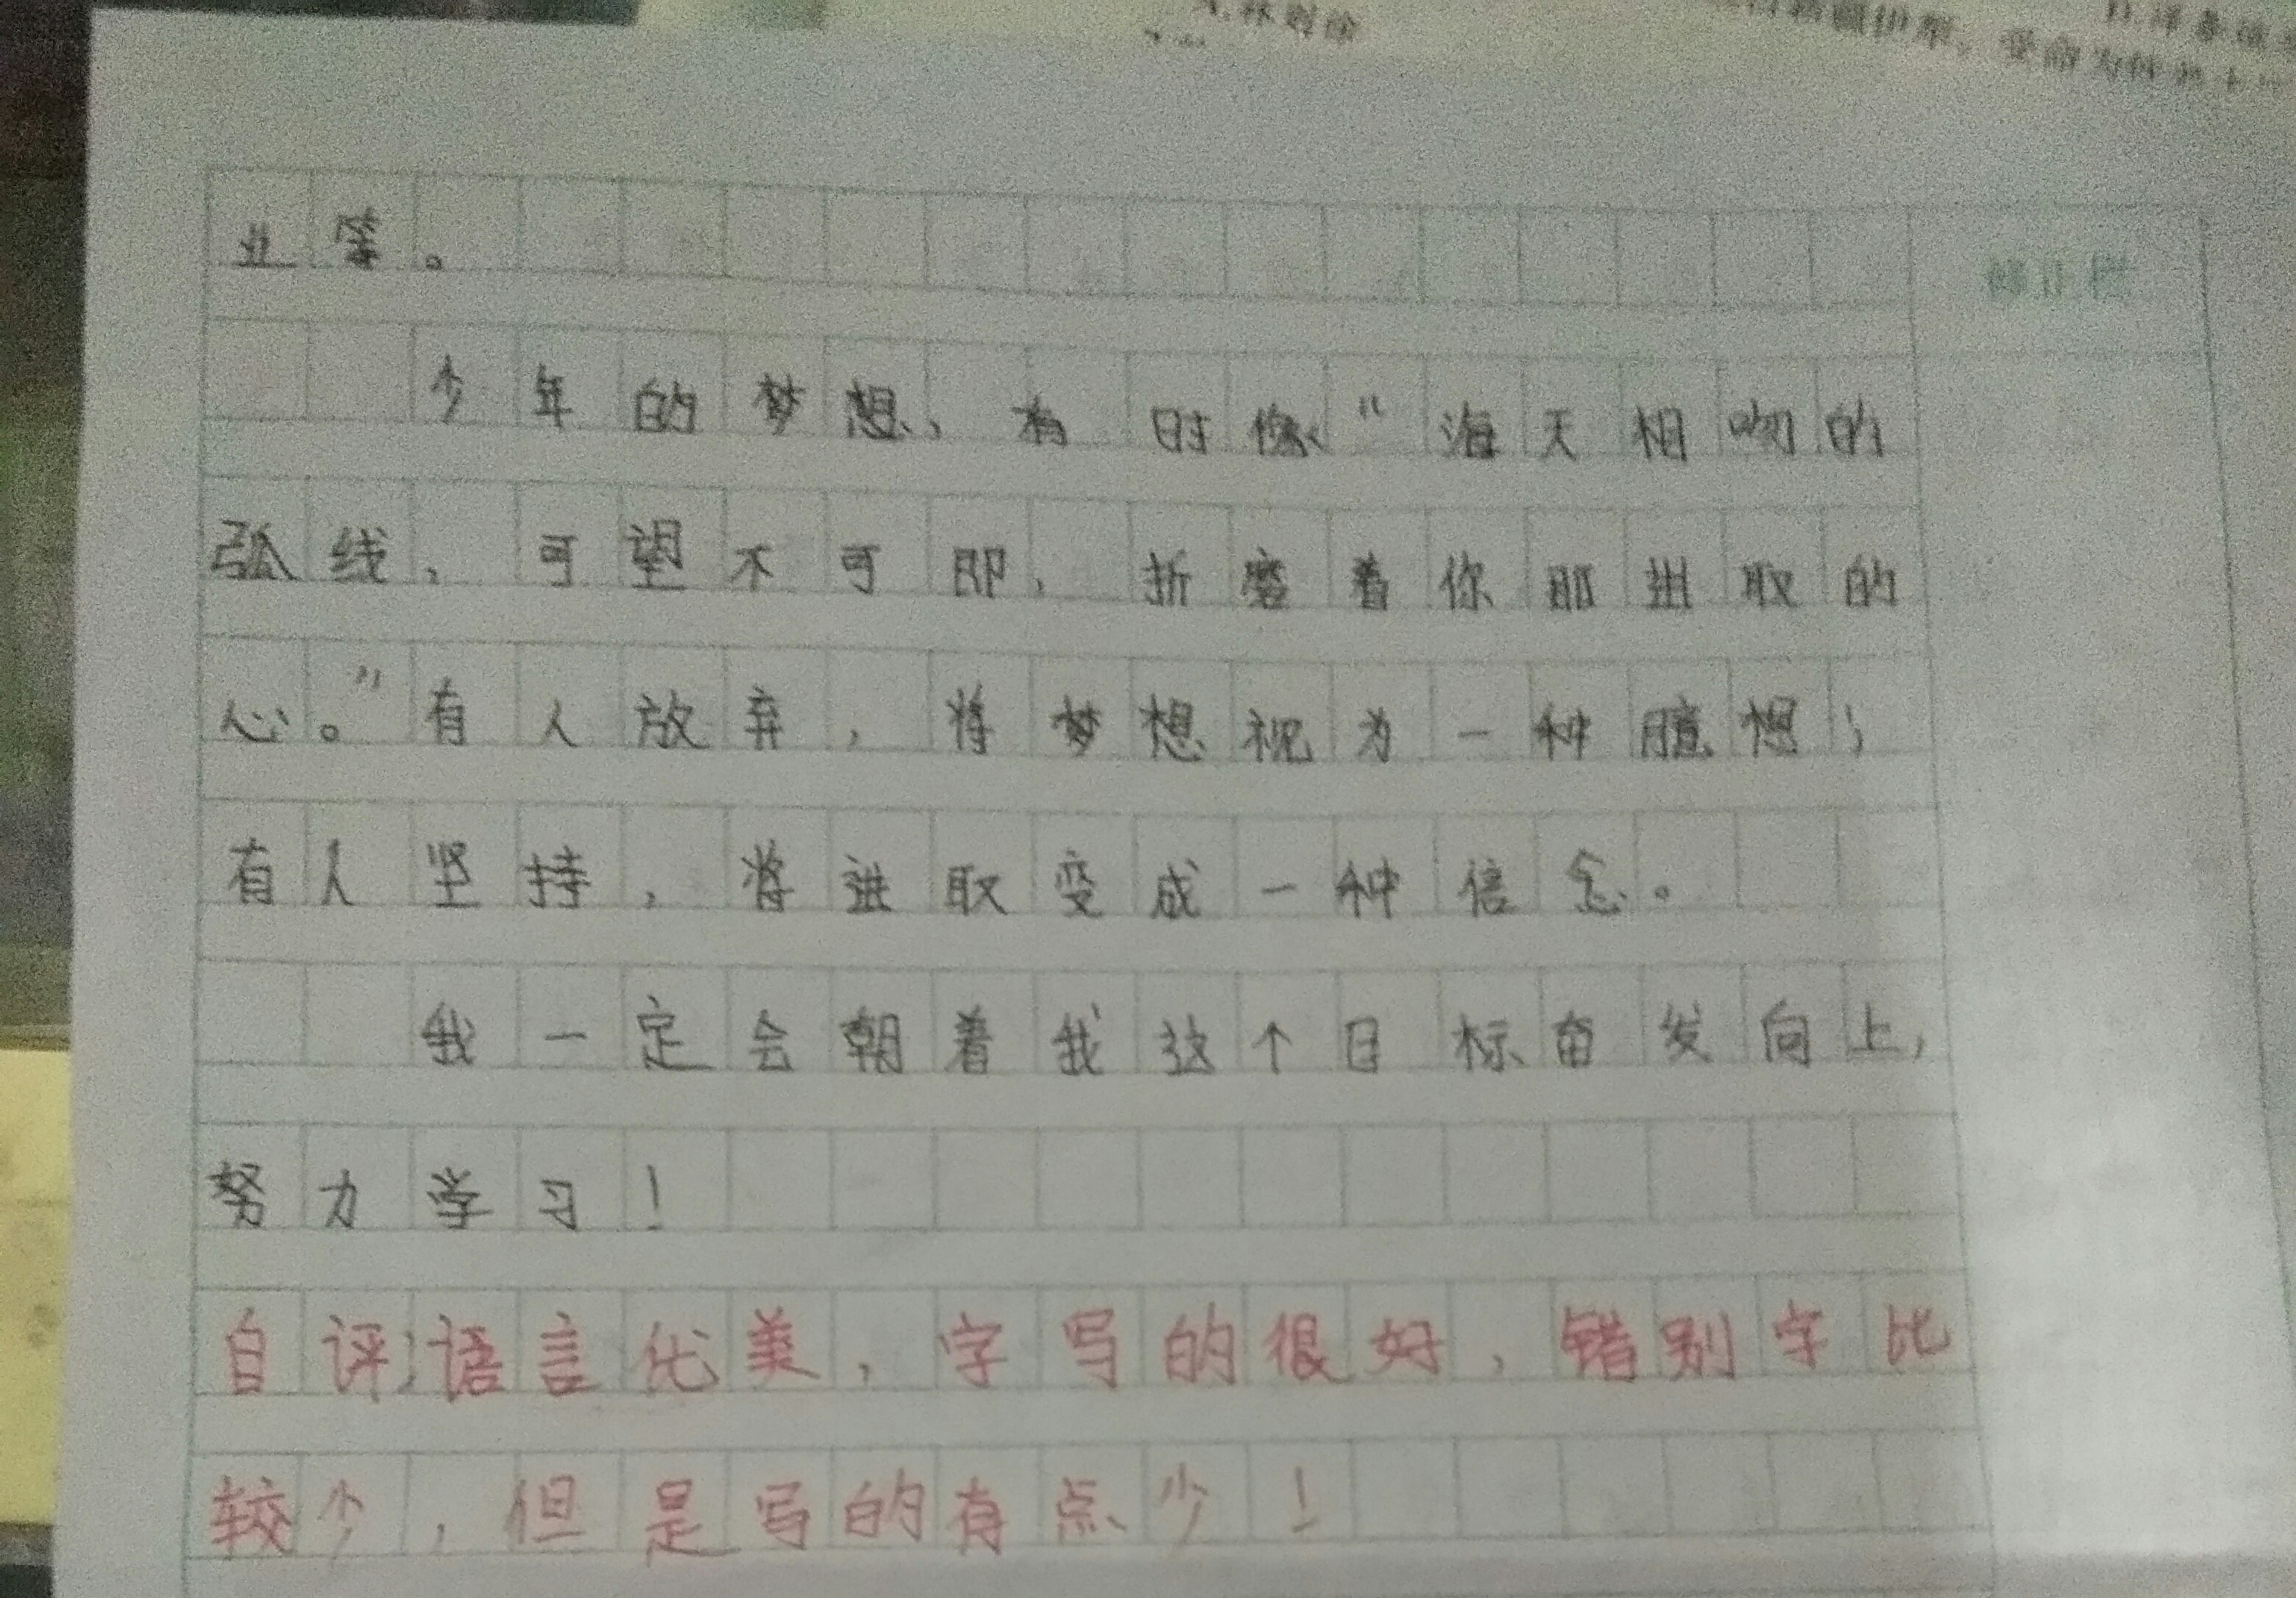 业等。
少年的梦想，有时像“海天相吻的
弧线，可望不可即，折磨着你那进取的
心。”有人放弃，将梦想视为一种臆想；
有人坚持，将进取变成一种信念。
我一定会朝着我这个目标奋发向上，
努力学习！
自评：语言优美，字写的很好，错别字比
较少，但是写的有点少！